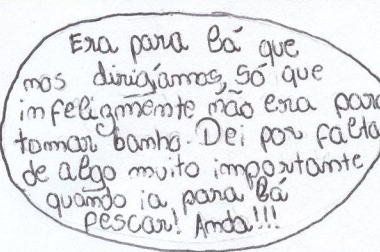 Era para lá que
nos dirigíamos, só que
infelizmente não era para
tomar banho. Dei por falta
de algo muito importante
quando ia para lá
pescar! Anda!!!